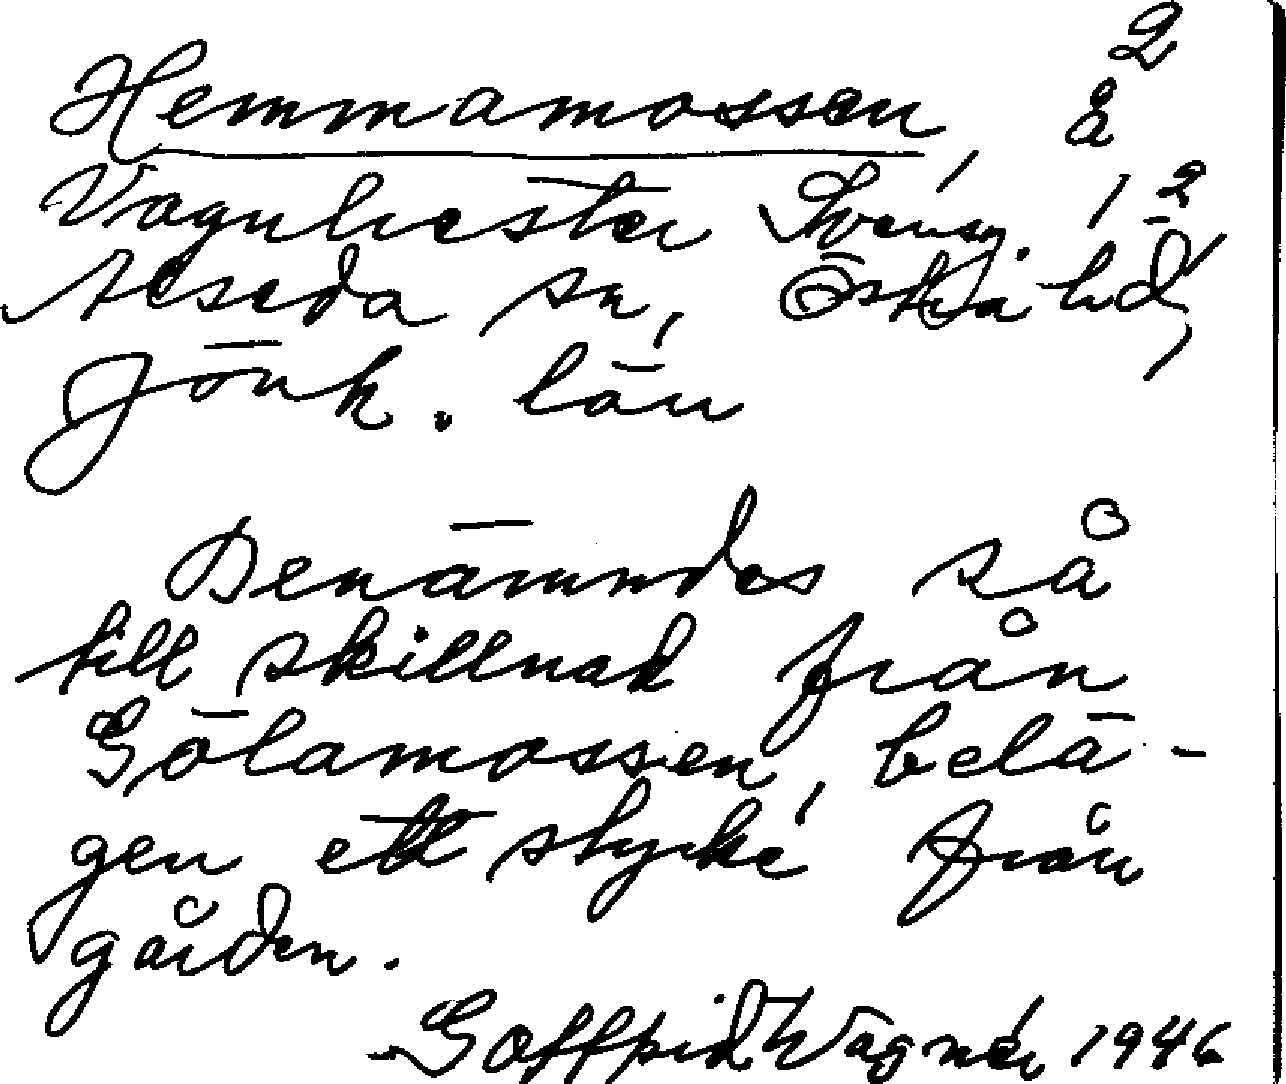 2
Hemmamossen, å
Vagnhester 1 2
Alseda sn, Östra hd,
Jönk. län
Benämndes så
till skillnad från
Gölamossen, belä-
gen ett stycke från
gården.
Gottfrid Wagnér 1946